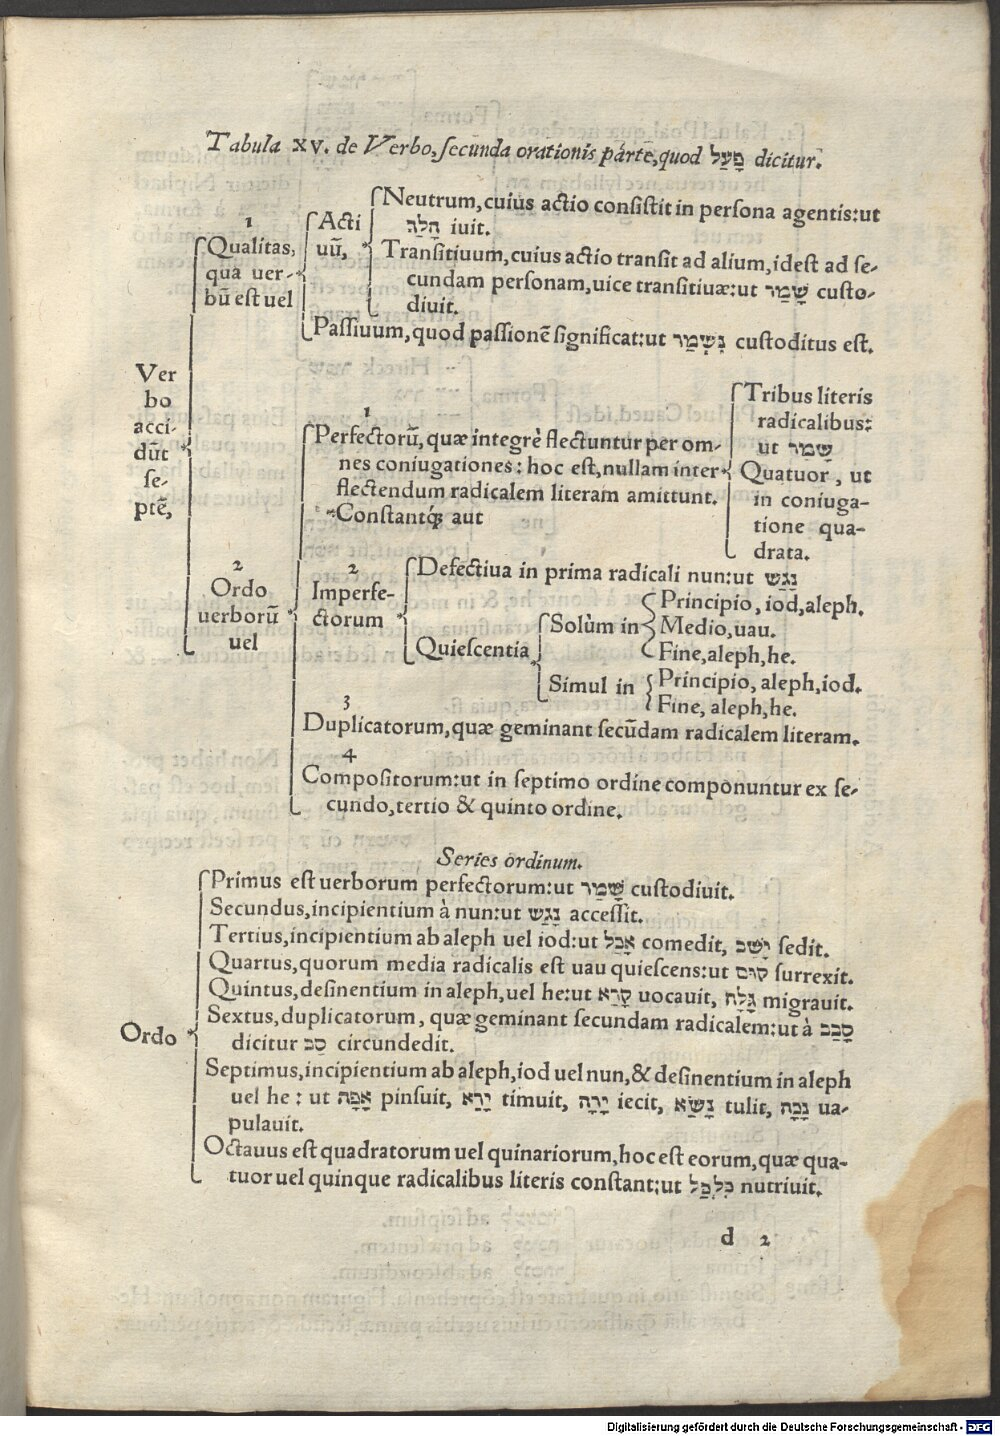 Tabula XV. de Verbo, secunda orationis parte, quod פָּעַל dicitur.
Neutrum, cuius actio consistit in persona agentis: ut
הָלַךְ iuit.
1
Acti
uũ,
Qualitas,
qua uer-
bũ est uel
Transitiuum, cuius actio transit ad alium, idest ad se-
cundam personam, uice transitiuæ: ut שָׁמַר custo-
diuit.
Passiuum, quod passionẽ significat: ut נִשְׁמַר custoditus est.
Ver
bo
acci-
dũt
se-
ptẽ,
1
Perfectorũ, quæ integrè flectuntur per om-
nes coniugationes: hoc est, nullam inter
flectendum radicalem literam amittunt.
Constantq́; aut
Tribus literis
radicalibus:
ut שָׁמַר
Quatuor, ut
in coniuga-
tione qua-
drata.
2
Ordo
uerborũ
uel
2
Imperfe-
ctorum
Defectiua in prima radicali nun: ut נָגַשׁ
Quiescentia
Solùm in
Principio, iod, aleph.
Medio, uau.
Fine, aleph, he.
Simul in
Principio, aleph, iod.
Fine, aleph, he.
3
Duplicatorum, quæ geminant secũdam radicalem literam.
4
Compositorum: ut in septimo ordine componuntur ex se-
cundo, tertio & quinto ordine.
Series ordinum.
Ordo
Primus est uerborum perfectorum: ut שָׁמַר custodiuit.
Secundus, incipientium à nun: ut נָגַשׁ accessit.
Tertius, incipientium ab aleph uel iod: ut אָכַל comedit, יָשַׁב sedit.
Quartus, quorum media radicalis est uau quiescens: ut קוּם surrexit.
Quintus, desinentium in aleph, uel he: ut קָרָא uocauit, גָּלָה migrauit.
Sextus, duplicatorum, quæ geminant secundam radicalem: ut à סָבַב
dicitur סַב circundedit.
Septimus, incipientium ab aleph, iod uel nun, & desinentium in aleph
uel he: ut אָפָה pinsuit, יָרֵא timuit, יָרָה iecit, נָשָׂא tulit, נָכָה ua-
pulauit.
Octauus est quadratorum uel quinariorum, hoc est eorum, quæ qua-
tuor uel quinque radicalibus literis constant: ut כִּלְכֵּל nutriuit.
d 2
Digitalisierung gefördert durch die Deutsche Forschungsgemeinschaft - DFG